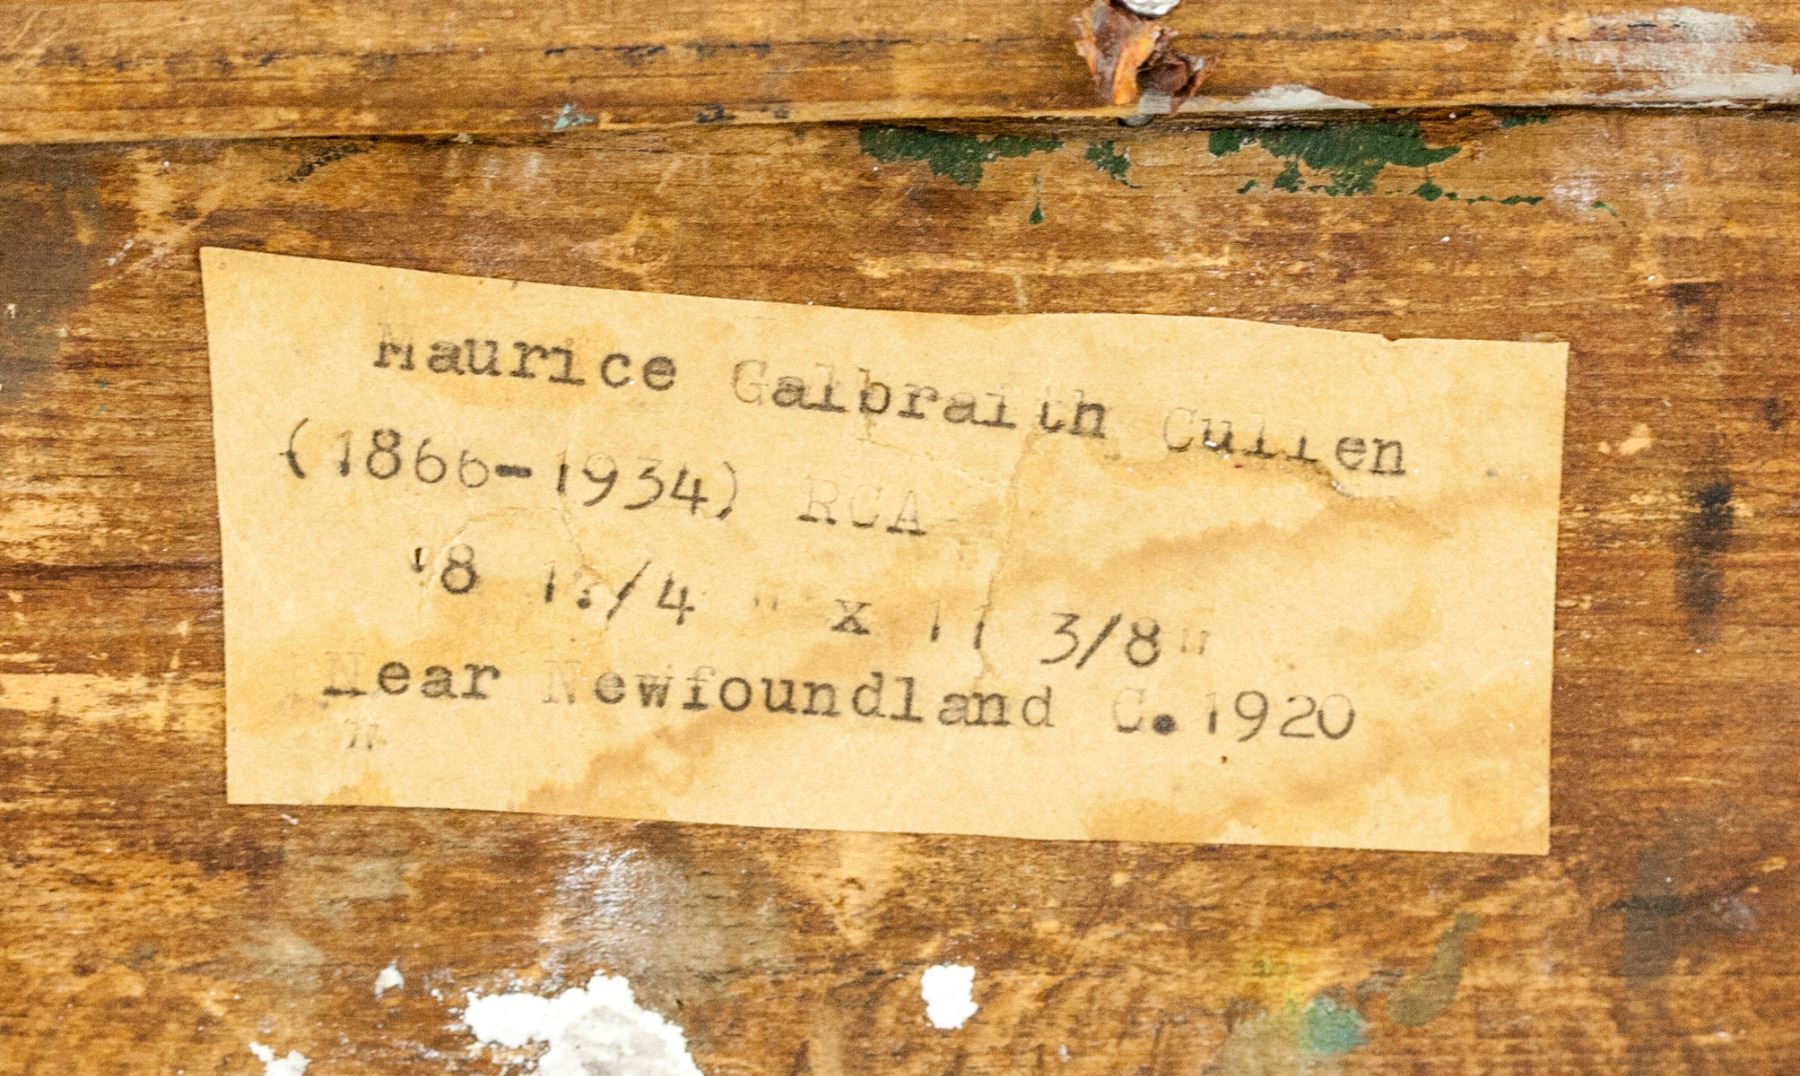 Maurice Galbraith Cullen
(1866-1934) RCA
"8 1?/4 " x 11 3/8"
Near Newfoundland C.1920